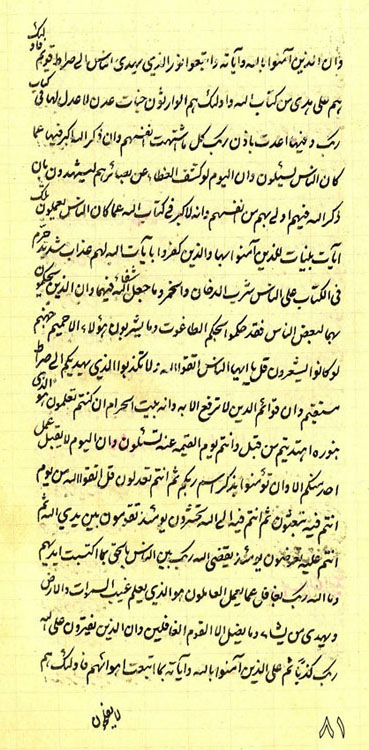 وان الذين آمنوا بالله وآياته واتبعوا نور الذي يهدى الناس الى صراط قويم فاولئك
هم على هدى من كتاب الله واولئك هم الوارثون جنات عدن لا عدل لها فى كتاب
ربك وفيها اعدت باذن ربك كل ما شتهت انفسهم وان ذكر الله اكبر فيها عما
كان الناس يسئلون وان اليوم لو كشف الغطاء عن بصائرهم ليشهدون بان
ذكر الله فيهم اولى بهم من انفسهم وانه لاكبر فى كتاب الله عما كان الناس يعملون تلك
آيات بينات للذين آمنوا بها والذين كفروا بايات الله لهم عذاب شديد حرم
فى الكتاب على الناس شرب الدخان والخمر وما جعل الله شفاء فيهما وان الذين يحكمون
بهما لبعض الناس فقد حكموا بحكم الطاغوت وما يشربون هؤلاء الا حميم جهنم
لو كانوا ليشعرون قل يا ايها الناس اتقوا الله ولا تكذبوا الذى يهديكم الى صراط
مستقيم وان قوائم الدين لا ترفع الا به وانه بيت الحرام ان كنتم تعلمون هو الذى
بنوره اهتديتم من قبل وانتم يوم القيمة عنه تسئلون وان اليوم لا يقبل عمل
احد منكم الا وان تؤمنوا بذكر اسم ربكم ثم انتم تعدلون قل اتقوا الله من يوم
انتم فيه تبعثون ثم انتم فيه الى الله تحشرون يومئذ تقومون بين يدي الله ثم
انتم عليه تعرضون يومئذ يقضى الله ربك بين الناس بالحق بما اكتسبت ايديهم
وما الله ربك بغافل عما يعمل العاملون هو الذي يعلم غيب السموات والارض
ويهدى من يشاء وما يضل الا القوم الغافلين وان الذين يفترون على الله
ربك كذبا ثم على الذين آمنوا بالله وآياته بما اتبعت اهوائهم فاولئك هم
لا يفلحون
٨١